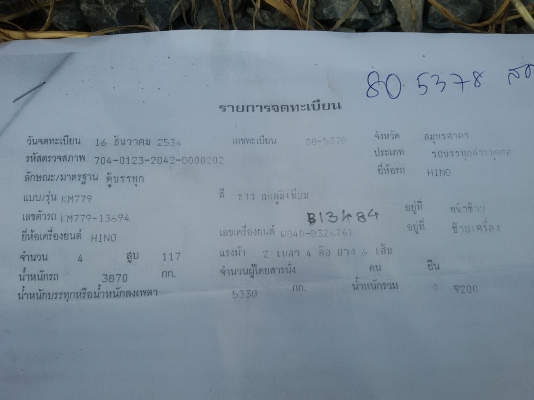 80 5378 สค
รายการจดทะเบียน
วันจดทะเบียน 16 ธันวาคม 2534 เลขทะเบียน 80-5378 จังหวัด สมุทรสาคร
รหัสตรวจสภาพ 704-0123-2042-0000202 ประเภท รถบรรทุกส่วนบุคคล
ลักษณะ/มาตรฐาน ตู้บรรทุก ยี่ห้อรถ HINO
แบบ/รุ่น KM779 สี ขาว อลูมิเนียม
B13484
เลขตัวรถ KM779-13694 อยู่ที่ หน้าซ้าย
ยี่ห้อเครื่องยนต์ HINO เลขเครื่องยนต์ W04D-D326761 อยู่ที่ ซ้ายเครื่อง
จำนวน 4 สูบ 117 แรงม้า 2 เพลา 4 ล้อ ยาง 6 เส้น
น้ำหนักรถ 3870 กก. จำนวนผู้โดยสารนั่ง คน ยืน
น้ำหนักบรรทุกหรือน้ำหนักลงเพลา 5330 กก. น้ำหนักรวม 9200